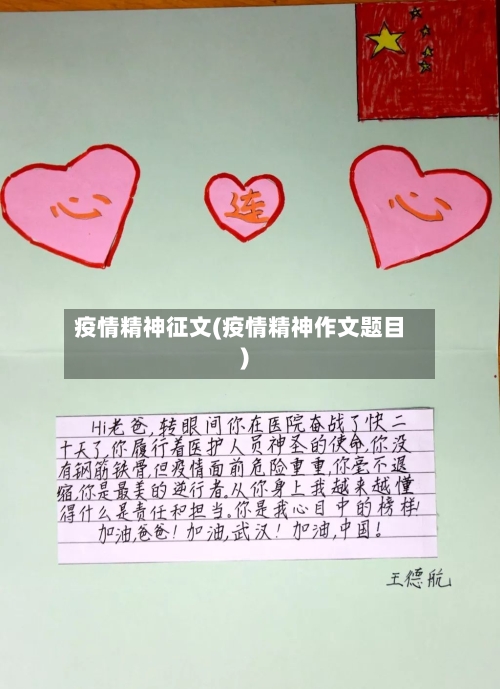 心 连 心
疫情精神征文(疫情精神作文题目
)
Hi老爸,转眼间你在医院奋战了快二
十天了,你履行着医护人员神圣的使命,你没
有钢筋铁骨,但疫情面前危险重重,你毫不退
缩,你是最美的逆行者,从你身上我越来越懂
得什么是责任和担当,你是我心目中的榜样!
加油,爸爸!加油,武汉!加油,中国!
王德航